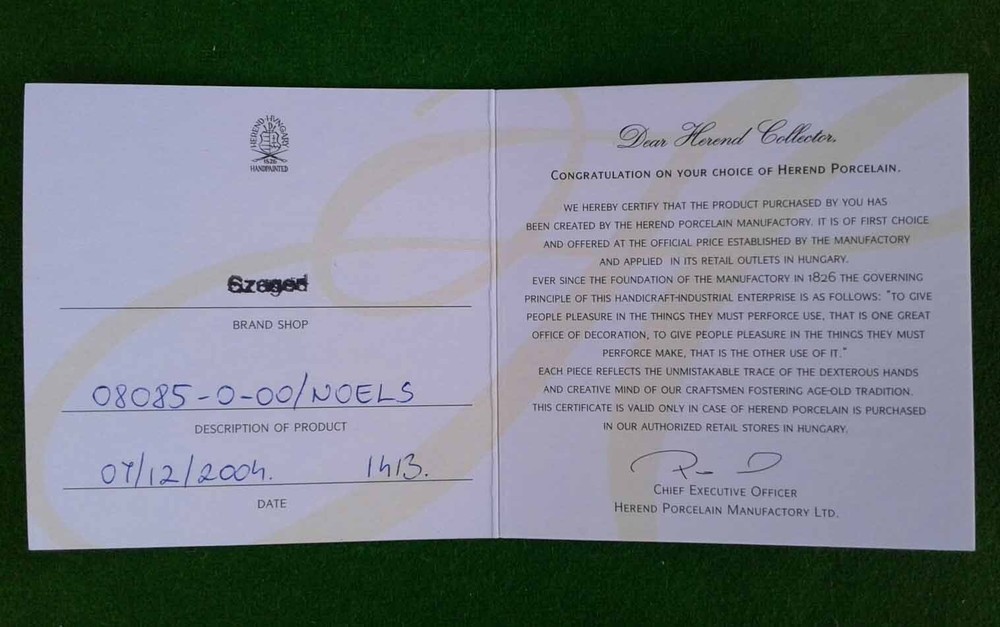 HEREND HUNGARY
1826
HANDPAINTED
Szeged
BRAND SHOP
08085-0-00/NOELS
DESCRIPTION OF PRODUCT
07/12/2004. 1413.
DATE
Dear Herend Collector,
CONGRATULATION ON YOUR CHOICE OF HEREND PORCELAIN.
WE HEREBY CERTIFY THAT THE PRODUCT PURCHASED BY YOU HAS
BEEN CREATED BY THE HEREND PORCELAIN MANUFACTORY. IT IS OF FIRST CHOICE
AND OFFERED AT THE OFFICIAL PRICE ESTABLISHED BY THE MANUFACTORY
AND APPLIED IN ITS RETAIL OUTLETS IN HUNGARY.
EVER SINCE THE FOUNDATION OF THE MANUFACTORY IN 1826 THE GOVERNING
PRINCIPLE OF THIS HANDICRAFT-INDUSTRIAL ENTERPRISE IS AS FOLLOWS: "TO GIVE
PEOPLE PLEASURE IN THE THINGS THEY MUST PERFORCE USE, THAT IS ONE GREAT
OFFICE OF DECORATION, TO GIVE PEOPLE PLEASURE IN THE THINGS THEY MUST
PERFORCE MAKE, THAT IS THE OTHER USE OF IT."
EACH PIECE REFLECTS THE UNMISTAKABLE TRACE OF THE DEXTEROUS HANDS
AND CREATIVE MIND OF OUR CRAFTSMEN FOSTERING AGE-OLD TRADITION.
THIS CERTIFICATE IS VALID ONLY IN CASE OF HEREND PORCELAIN IS PURCHASED
IN OUR AUTHORIZED RETAIL STORES IN HUNGARY.
CHIEF EXECUTIVE OFFICER
HEREND PORCELAIN MANUFACTORY LTD.